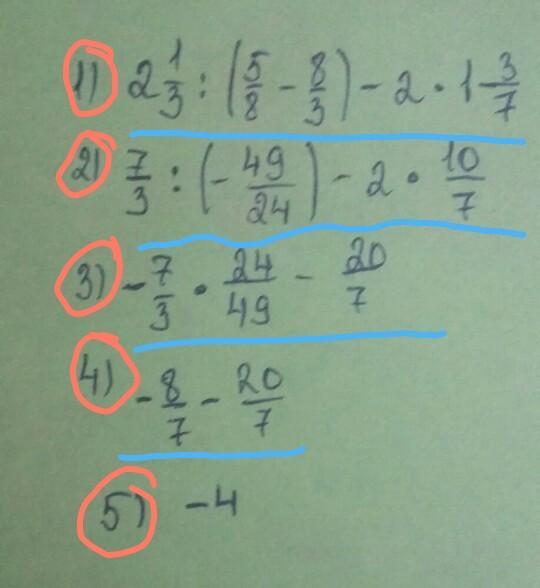 1) 2 1/3 : (5/8 - 8/3) - 2 · 1 3/7
2) 7/3 : (- 49/24) - 2 · 10/7
3) - 7/3 · 24/49 - 20/7
4) - 8/7 - 20/7
5) -4